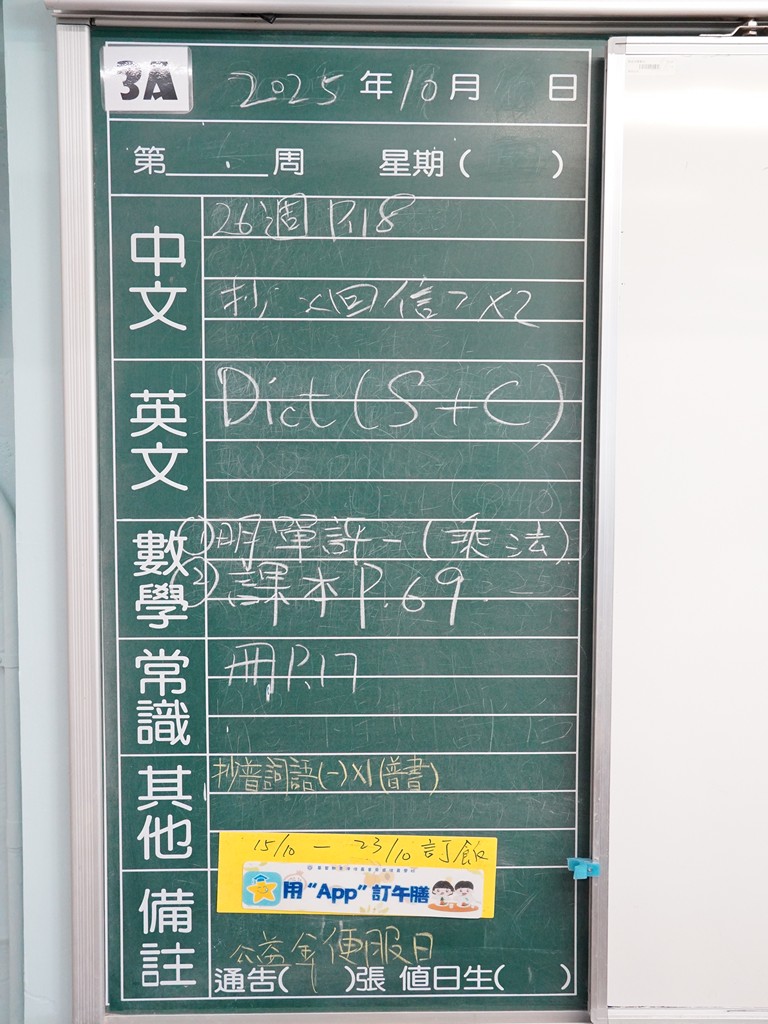 3A 2025年10月 日
第 周 星期( )
中文
26週 P.18
抄 回信 X2
英文
Dict (S+C)
數學
① 單評一(乘法)
② 課本P.69
常識
冊P.17
其他
抄普詞語(一)X1(普書)
15/10 — 23/10 訂飯
用“App”訂午膳
備註
公益金便服日
通告( )張 值日生( )